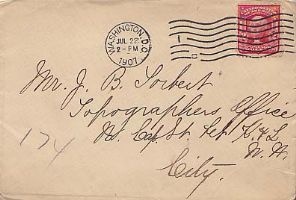 WASHINGTON, D.C.
JUL 22
2-PM
1907
Mr. J. B. Torbert
Topographers Office
N. Cap. St. bet G & H
N. W.
City.
174